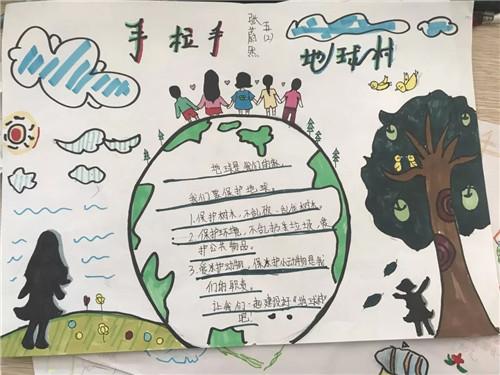 手拉手
地球村
五(2)
张蔚然
地球是我们的家。
我们要保护地球。
1.保护树木,不乱砍
2.保护环境,不乱扔垃圾,爱
护公共物品。
3.爱护动物,保护小动物是我
们的职责。
让我们一起建设好"地球村"
吧!